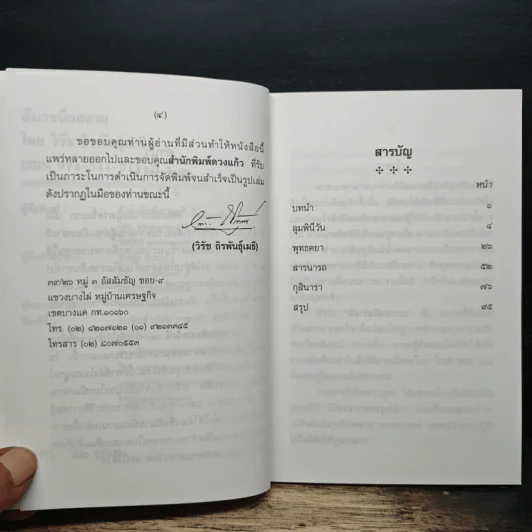 (๔)
ขอขอบคุณท่านผู้อ่านที่มีส่วนทำให้หนังสือนี้
แพร่หลายออกไปและขอบคุณสำนักพิมพ์ดวงแก้ว ที่รับ
เป็นภาระในการดำเนินการจัดพิมพ์จนสำเร็จเป็นรูปเล่ม
ดังปรากฏในมือของท่านขณะนี้
(วิรัช ถิรพันธุ์เมธี)
๓๙/๒๖ หมู่ ๓ อัสสัมชัญ ซอย-๙
แขวงบางไผ่ หมู่บ้านเศรษฐกิจ
เขตบางแค กท.๑๐๑๖๐
โทร. (๐๒) ๔๒๑๗๐๒๑ (๐๑) ๙๒๑๓๓๔๕
โทรสาร (๐๒) ๘๐๗๐๕๕๓
สารบัญ
หน้า
บทนำ ๑
ลุมพินีวัน ๔
พุทธคยา ๒๖
สารนารถ ๕๒
กุสินารา ๗๖
สรุป ๙๕